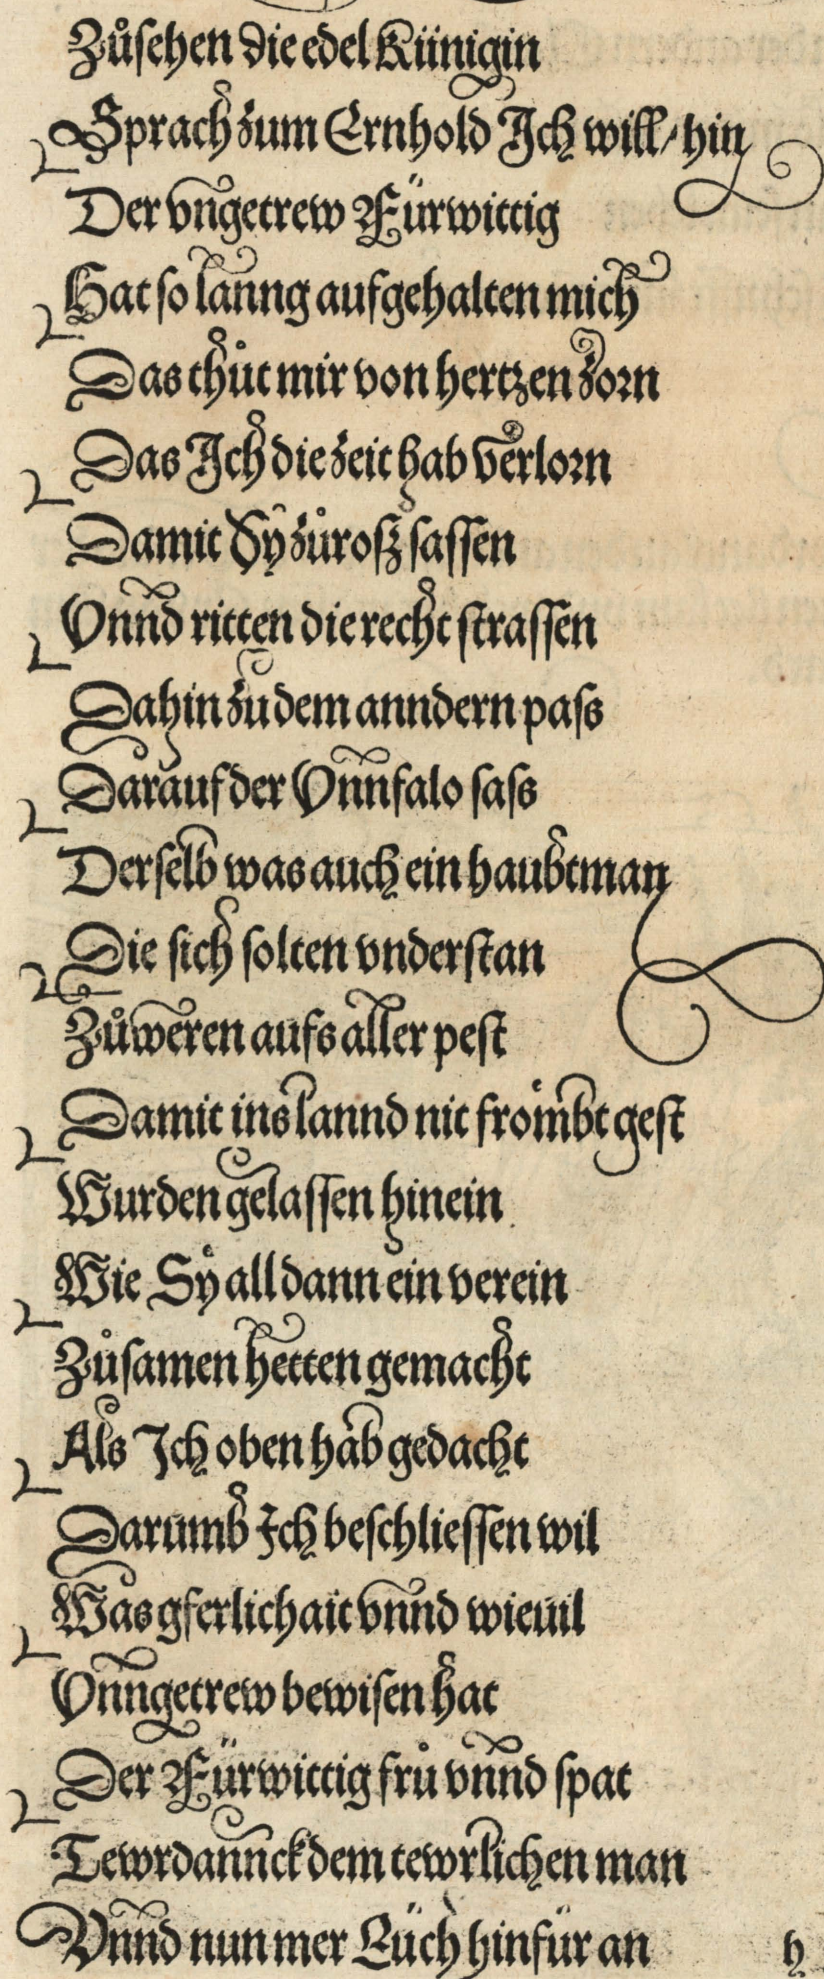 Zůsehen die edel Künigin
Sprach zum Ernhold Ich will / hin
Der vngetrew Fürwittig
Hat so lanng aufgehalten mich
Das thůt mir von hertzen zorn
Das Ich die zeit hab verlorn
Damit Sy zůroß sassen
Vnnd ritten die recht strassen
Dahin zu dem anndern pass
Darauf der Vnnfalo sass
Derselb was auch ein haubtman
Die sich solten vnderstan
Zůweren aufs aller pest
Damit ins lannd nit frömbt gest
Wurden gelassen hinein
Wie Sy all dann ein verein
Zůsamen hetten gemacht
Als Ich oben hab gedacht
Darumb Ich beschliessen wil
Was gferlichait vnnd wieuil
Vnngetrew bewisen hat
Der Fürwittig frů vnnd spat
Tewrdannck dem tewrlichen man
Vnnd nun mer Eüch hinfür an h